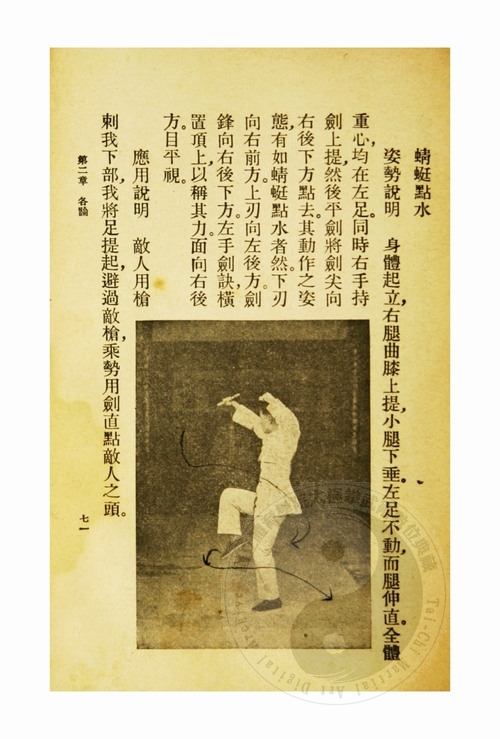 蜻蜓點水
姿勢說明　身體起立，右腿曲膝上提，小腿下垂。左足不動，而腿伸直。全體
重心，均在左足。同時右手持
劍上提，然後平劍將劍尖向
右後下方點去。其動作之姿
態，有如蜻蜓點水者然。下刃
向右前方，上刃向左後方。劍
鋒向右後下方。左手劍訣，橫
置項上，以稱其力。面向右後
方。目平視。
應用說明　敵人用槍
刺我下部，我將足提起，避過敵槍，乘勢用劍直點敵人之頭。
第二章　各論
七一
Tai-Chi Martial Art Digital Archives